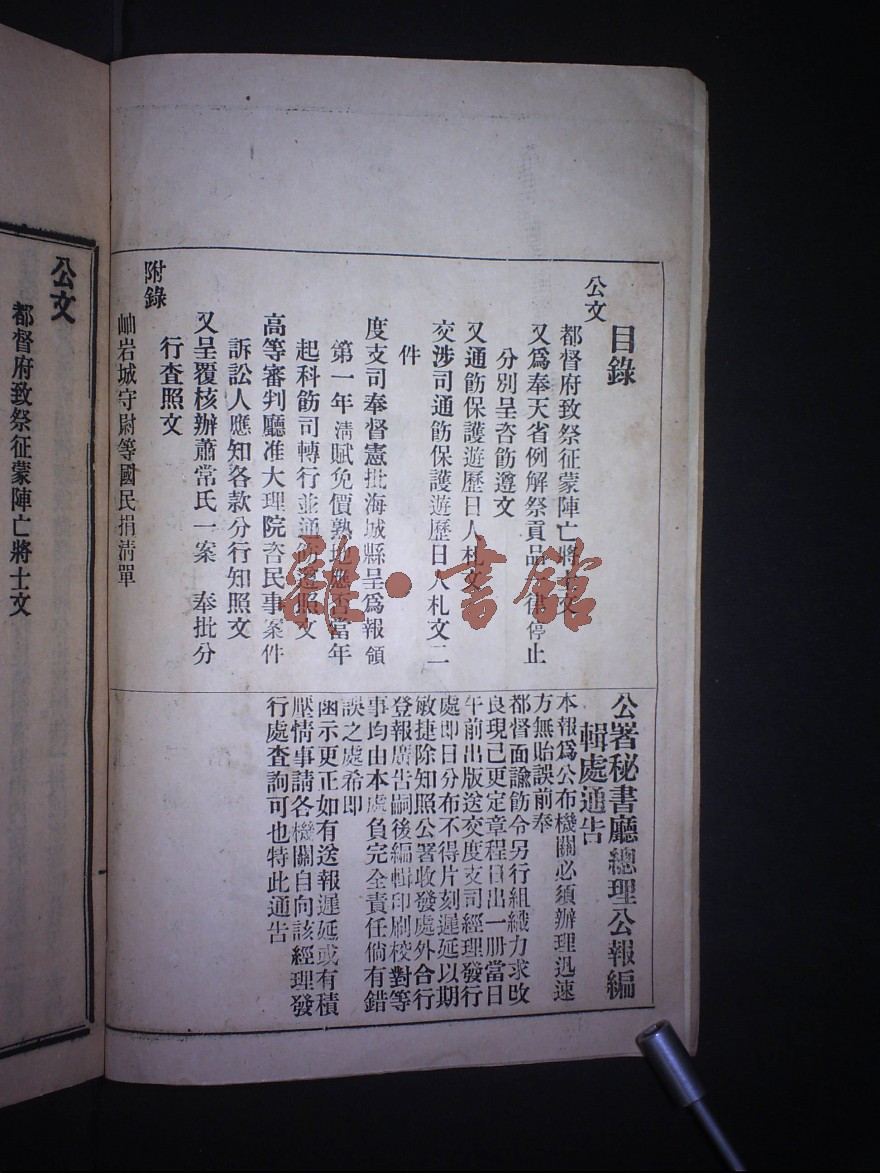 目錄
公文
都督府致祭征蒙陣亡將士文
又爲奉天省例解祭貢品一律停止
分別呈咨飭遵文
又通飭保護遊歷日人札文
交涉司通飭保護遊歷日人札文二
件
度支司奉督憲批海城縣呈爲報領
第一年清賦免價熟地應否當年
起科飭司轉行並通飭遵照文
高等審判廳准大理院咨民事案件
訴訟人應知各款分行知照文
又呈覆核辦蕭常氏一案 奉批分
行查照文
附錄
岫岩城守尉等國民捐清單
公署秘書廳總理公報編
輯處通告
本報爲公布機關必須辦理迅速
方無貽誤前奉
都督面諭飭令另行組織力求改
良現已更定章程日出一册當日
午前出版送交度支司經理發行
處即日分布不得片刻遲延以期
敏捷除知照公署收發處外合行
登報廣告嗣後編輯印刷校對等
事均由本處負完全責任倘有錯
誤之處希即
函示更正如有送報遲延或有積
壓情事請各機關自向該經理發
行處查詢可也特此通告
公文
都督府致祭征蒙陣亡將士文
雜·書館